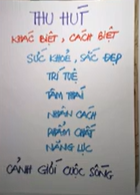 THU HÚT
KHÁC BIỆT, CÁCH BIỆT
SỨC KHOẺ, SẮC ĐẸP
TRÍ TUỆ
TÂM THÁI
NHÂN CÁCH
PHẨM CHẤT
NĂNG LỰC
CẢNH GIỚI CUỘC SỐNG